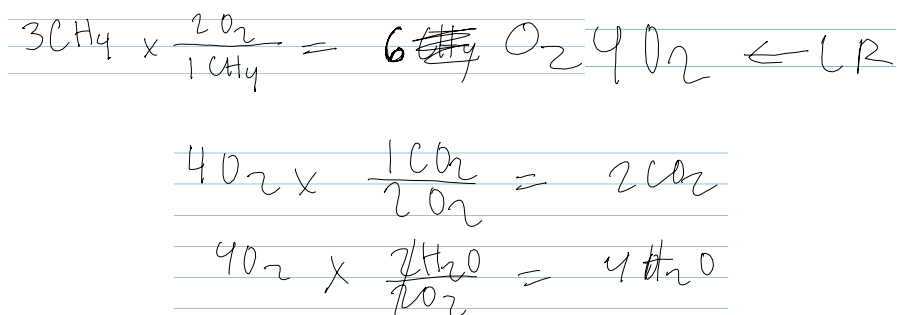 3CH4 x 2O2 / 1CH4 = 6 O2 4O2 ← LR
4O2 x 1CO2 / 2O2 = 2CO2
4O2 x 2H2O / 2O2 = 4H2O